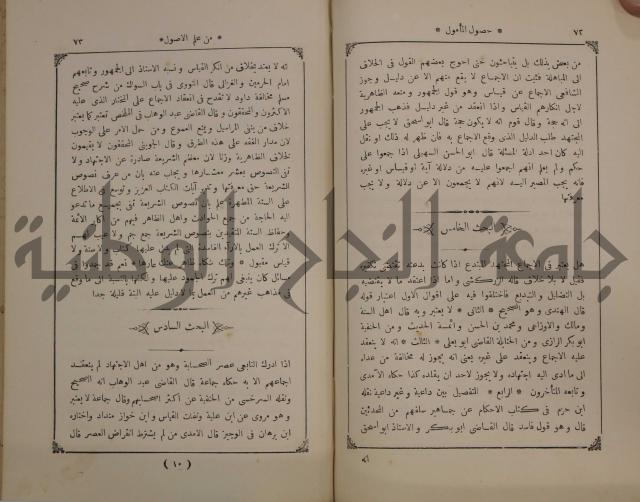 ٧٢ * حصول المأمول *
من بعض بذلك بل يتباحثون حتى احوج بعضهم القول فى الخلافى
الى المباهلة فثبت ان الاجماع لا يقع منهم الا عن دليل وجوز
الشافعى الاجماع عن قياس وهو قول الجمهور ومنعه الظاهرية
لاجل انكارهم القياس واذا انعقد من غير دليل فذهب الجمهور
الى انه حجة وقال قوم انه لا يكون حجة قال ابو اسحق لا يجب على
المجتهد طلب الدليل الذى وقع الاجماع به فان ظهر له ذلك او نقل
اليه كان احد ادلة المسئلة قال ابو الحسن السهيلى اذا اجمعوا على
حكم ولم يعلم انهم اجمعوا عليه من دلالة آية او قياس او غيره
فانه يجب المصير اليه لانهم لا يجمعون الا عن دلالة ولا يجب
معرفتها
البحث الخامس
هل يعتبر فى الاجماع المجتهد المبتدع اذا كانت بدعته تقتضى تكفيره
فقيل لا بلا خلاف قاله الزركشى واما اذا اعتقد ما لا يقتضيه
بل التضليل والتبديع فاختلفوا فيه على اقوال الاول اعتبار قوله
قال الهندى وهو الصحيح * الثانى * لا يعتبر وبه قال اهل السنة
ومالك والاوزاعى ومحمد بن الحسن وائمة الحديث ومن الحنفية
ابو بكر الرازى ومن الحنابلة القاضى ابو يعلى * الثالث * انه لا ينعقد
عليه الاجماع وينعقد على غيره يعنى انه يجوز له مخالفة من عداه
الى ما ادى اليه اجتهاده ولا يجوز لاحد ان يقلده كذا حكاه الآمدى
وتابعه المتأخرون * الرابع * التفصيل بين داعية وغير داعية نقله
ابن حزم فى كتاب الاحكام عن جماهير سلفهم من المحدثين
قال وهو قول فاسد قال القاضى ابو بكر والاستاذ ابو اسحق
انه
* من علم الاصول * ٧٣
انه لا يعتد بخلاف من انكر القياس ونسبه الاستاذ الى الجمهور وتابعهم
امام الحرمين والغزالى قال النووى فى باب السواك من شرح صحيح
مسلم مخالفة داود لا تقدح فى انعقاد الاجماع على المختار الذى عليه
الاكثرون والمحققون وقال القاضى عبد الوهاب فى الملخص يعتبر كما يعتبر
خلاف من ينفى المراسيل ويمنع العموم ومن حمل الامر على الوجوب
لان مدار الفقه على هذه الطرق وقال الجوينى المحققون لا يقيمون
لخلاف الظاهرية وزنا لان معظم الشريعة صادرة عن الاجتهاد ولا
تفى النصوص بعشر معشارها ويجاب عنه بان من عرف نصوص
الشريعة حق معرفتها وتدبر آيات الكتاب العزيز وتوسع فى الاطلاع
على السنة المطهرة علم بان نصوص الشريعة تفى بجميع ما تدعو
اليه الحاجة من جميع الحوادث واهل الظاهر فيهم من اكابر الائمة
وحفاظ السنة المتقيدين بنصوص الشريعة جمع جم ولا عيب لهم
الا ترك العمل بالآراء الفاسدة التى لم يدل عليها كتاب ولا سنة ولا
قياس مقبول * وتلك شكاة ظاهر عنك عارها * نعم قد جمدوا فى
مسائل كان ينبغى لهم ترك الجمود عليها ولكنها بالنسبة الى ما وقع
فى مذاهب غيرهم من العمل بما لا دليل عليه البتة قليلة جدا
البحث السادس
اذا ادرك التابعى عصر الصحابة وهو من اهل الاجتهاد لم ينعقد
اجماعهم الا به حكاه جماعة قال القاضى عبد الوهاب انه الصحيح
ونقله السرخسى من الحنفية عن اكثر اصحابهم وقال جماعة لا يعتبر
وهو مروى عن ابن علية ونفاة القياس وابن خواز منداد واختاره
ابن برهان فى الوجيز قال الآمدى من لم يشترط انقراض العصر قال
( ١٠ )
جامعة النجاح الوطنية